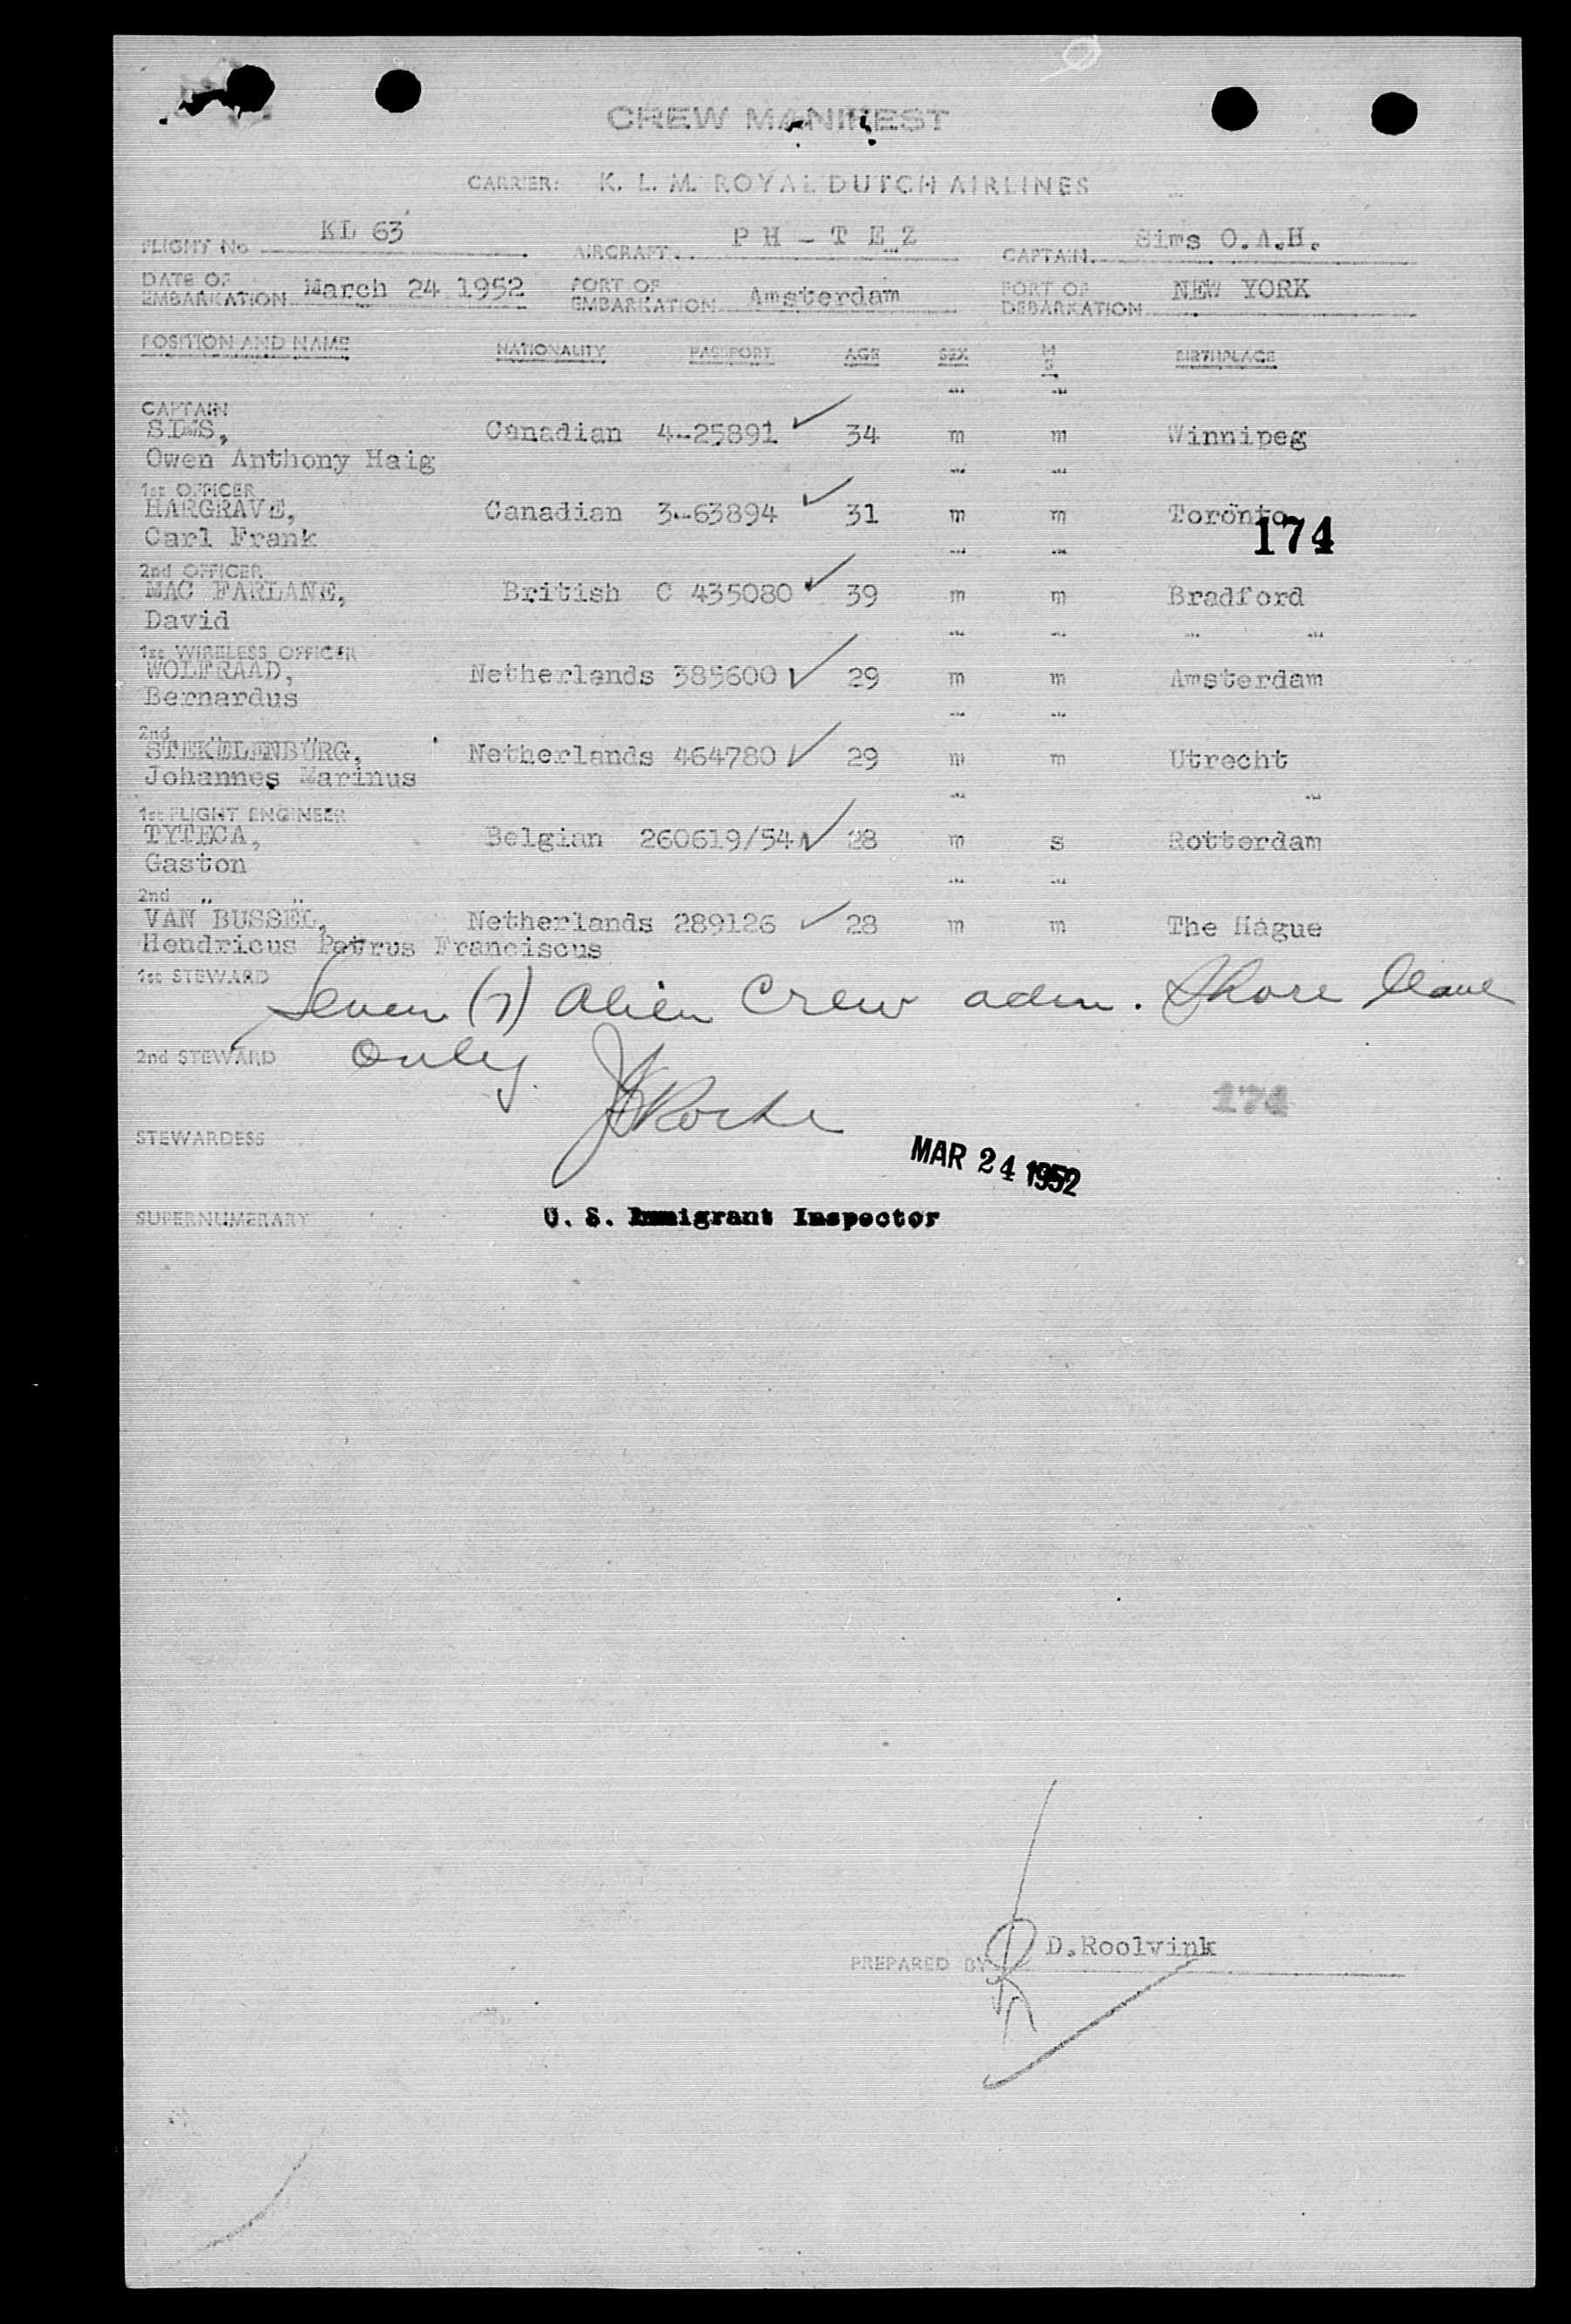 CREW MANIFEST
CARRIER: K. L. M. ROYAL DUTCH AIRLINES
FLIGHT No KL 63 AIRCRAFT. PH - TEZ CAPTAIN. Sims O.A.H.
DATE OF EMBARKATION March 24 1952 PORT OF EMBARKATION Amsterdam PORT OF DEBARKATION NEW YORK
POSITION AND NAME NATIONALITY PASSPORT AGE SEX M S BIRTHPLACE
CAPTAIN
SIMS, Canadian 4-25891 34 m m Winnipeg
Owen Anthony Haig
1st OFFICER
HARGRAVE, Canadian 3-63894 31 m m Toronto
Carl Frank
174
2nd OFFICER
MAC FARLANE, British C 435080 39 m m Bradford
David
1st WIRELESS OFFICER
WOLFRAAD, Netherlands 385600 29 m m Amsterdam
Bernardus
2nd " "
STEKELENBURG, Netherlands 464780 29 m m Utrecht
Johannes Marinus
1st FLIGHT ENGINEER
TYTECA, Belgian 260619/54 28 m s Rotterdam
Gaston
2nd " "
VAN BUSSEL, Netherlands 289126 28 m m The Hague
Hendricus Petrus Franciscus
1st STEWARD
Seven (7) Alien Crew adm. Shore leave
2nd STEWARD only.
174
STEWARDESS
MAR 24 1952
SUPERNUMERARY U. S. Immigrant Inspector
PREPARED BY D.Roolvink